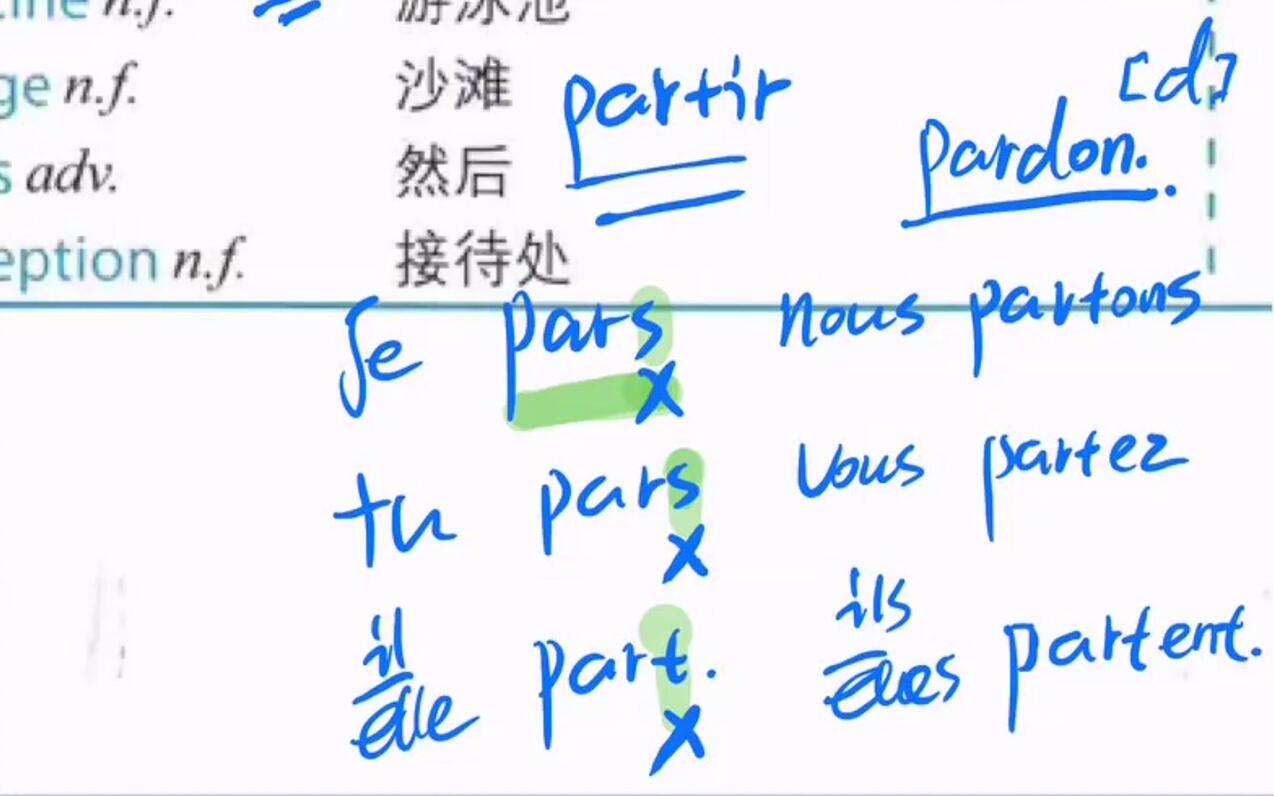 n.f. 游泳池
ge n.f. 沙滩 partir [d]
s adv. 然后 pardon.
eption n.f. 接待处
Je pars nous partons
x
tu pars vous partez
x
il ils
elle part. elles partent.
x